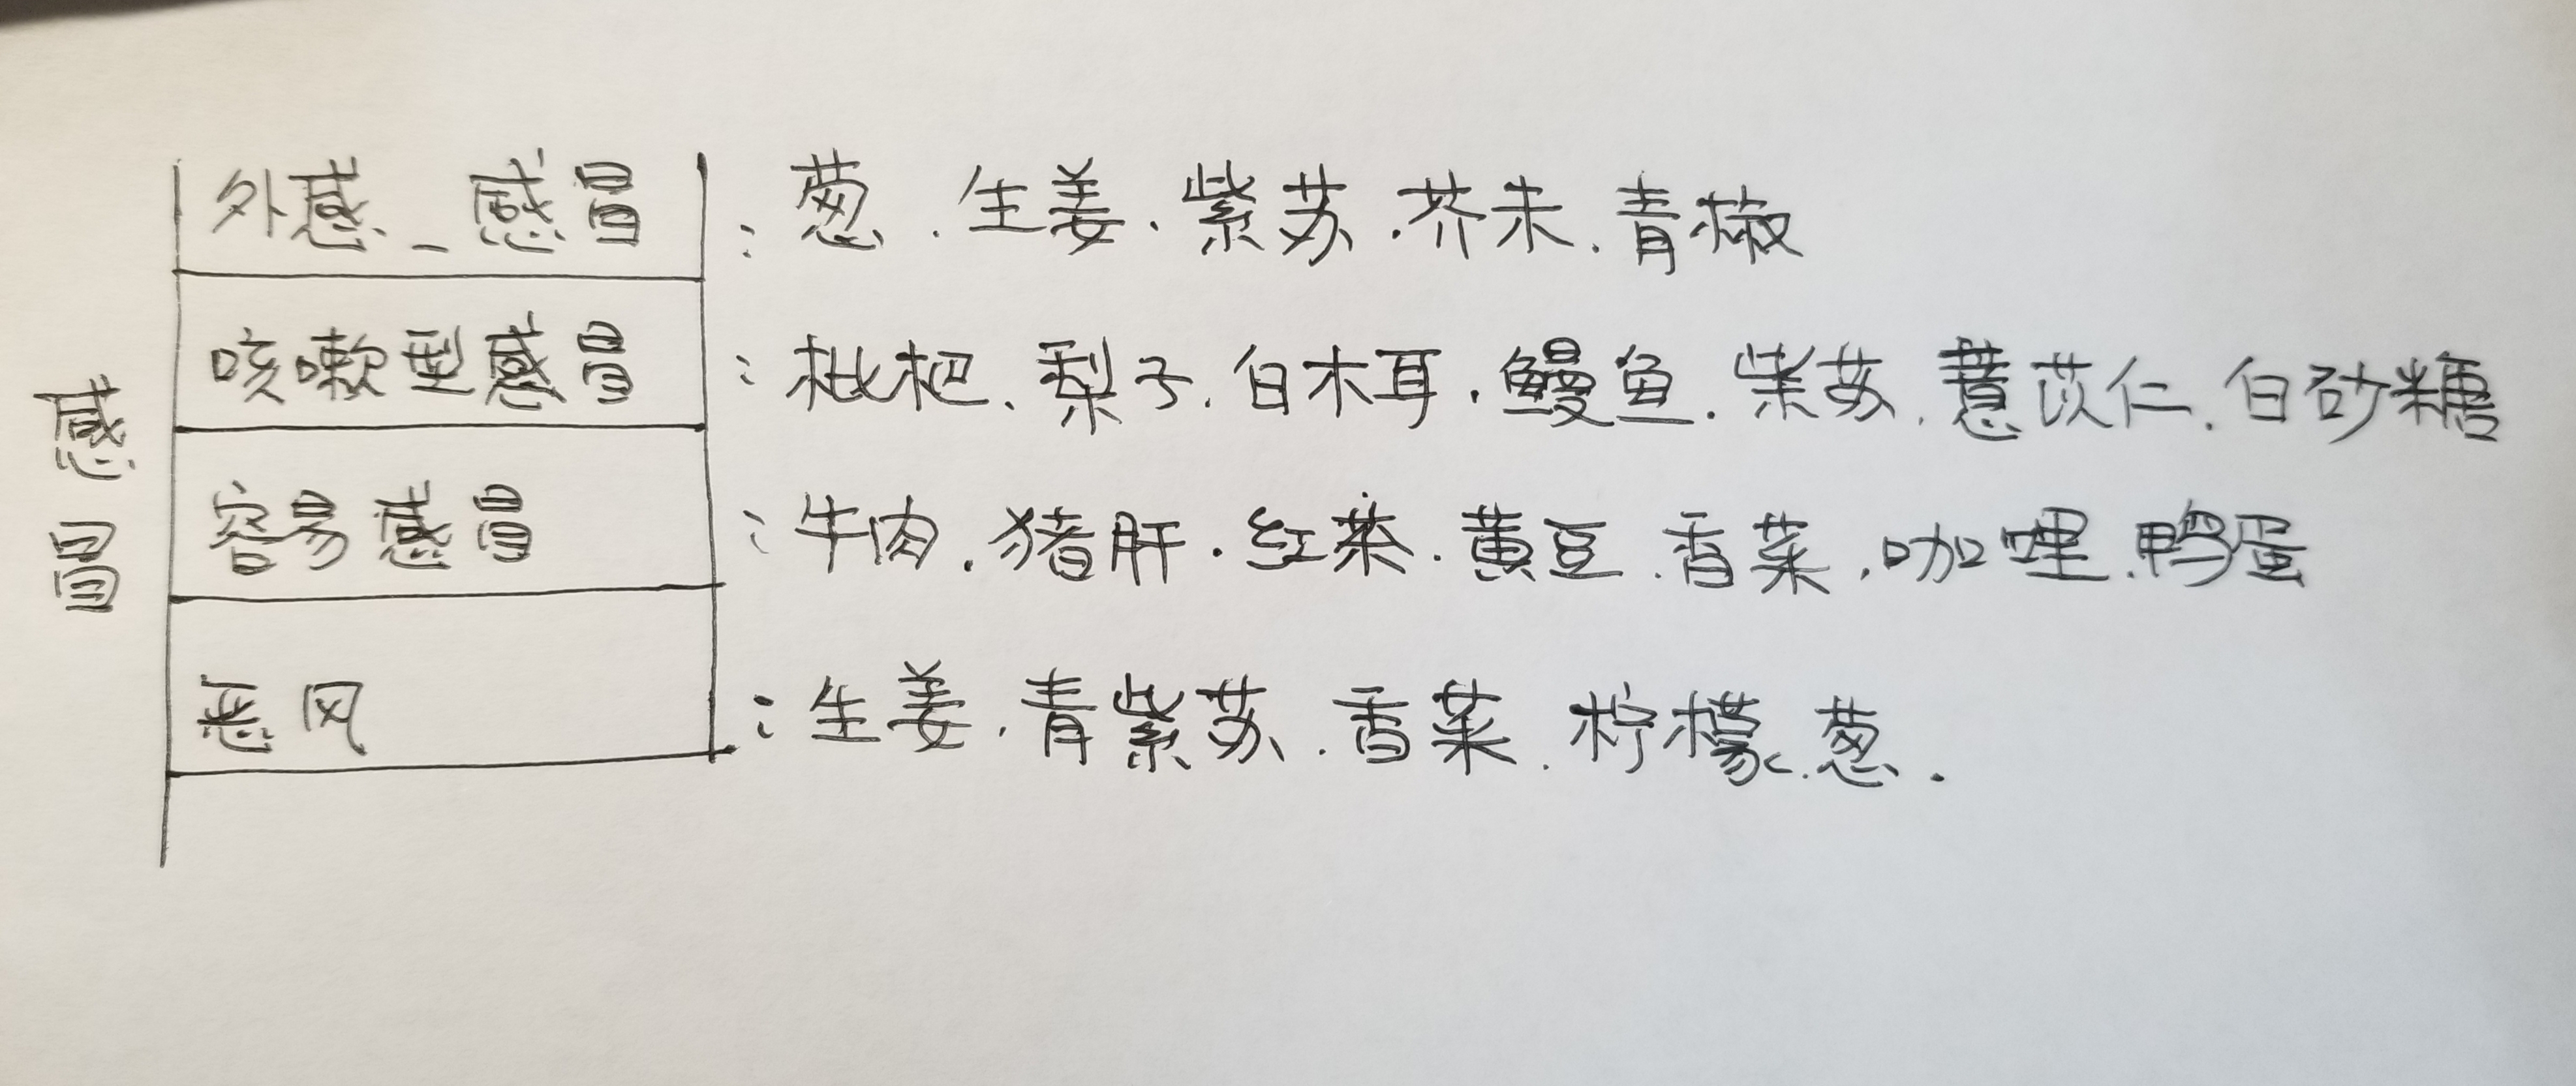 感冒
外感_感冒：葱.生姜.紫苏.芥末.青椒
咳嗽型感冒：枇杷、梨子.白木耳.鳗鱼.紫苏.薏苡仁.白砂糖
容易感冒：牛肉.猪肝.红茶.黄豆.香菜.咖哩.鸭蛋
恶风：生姜.青紫苏.香菜.柠檬.葱.